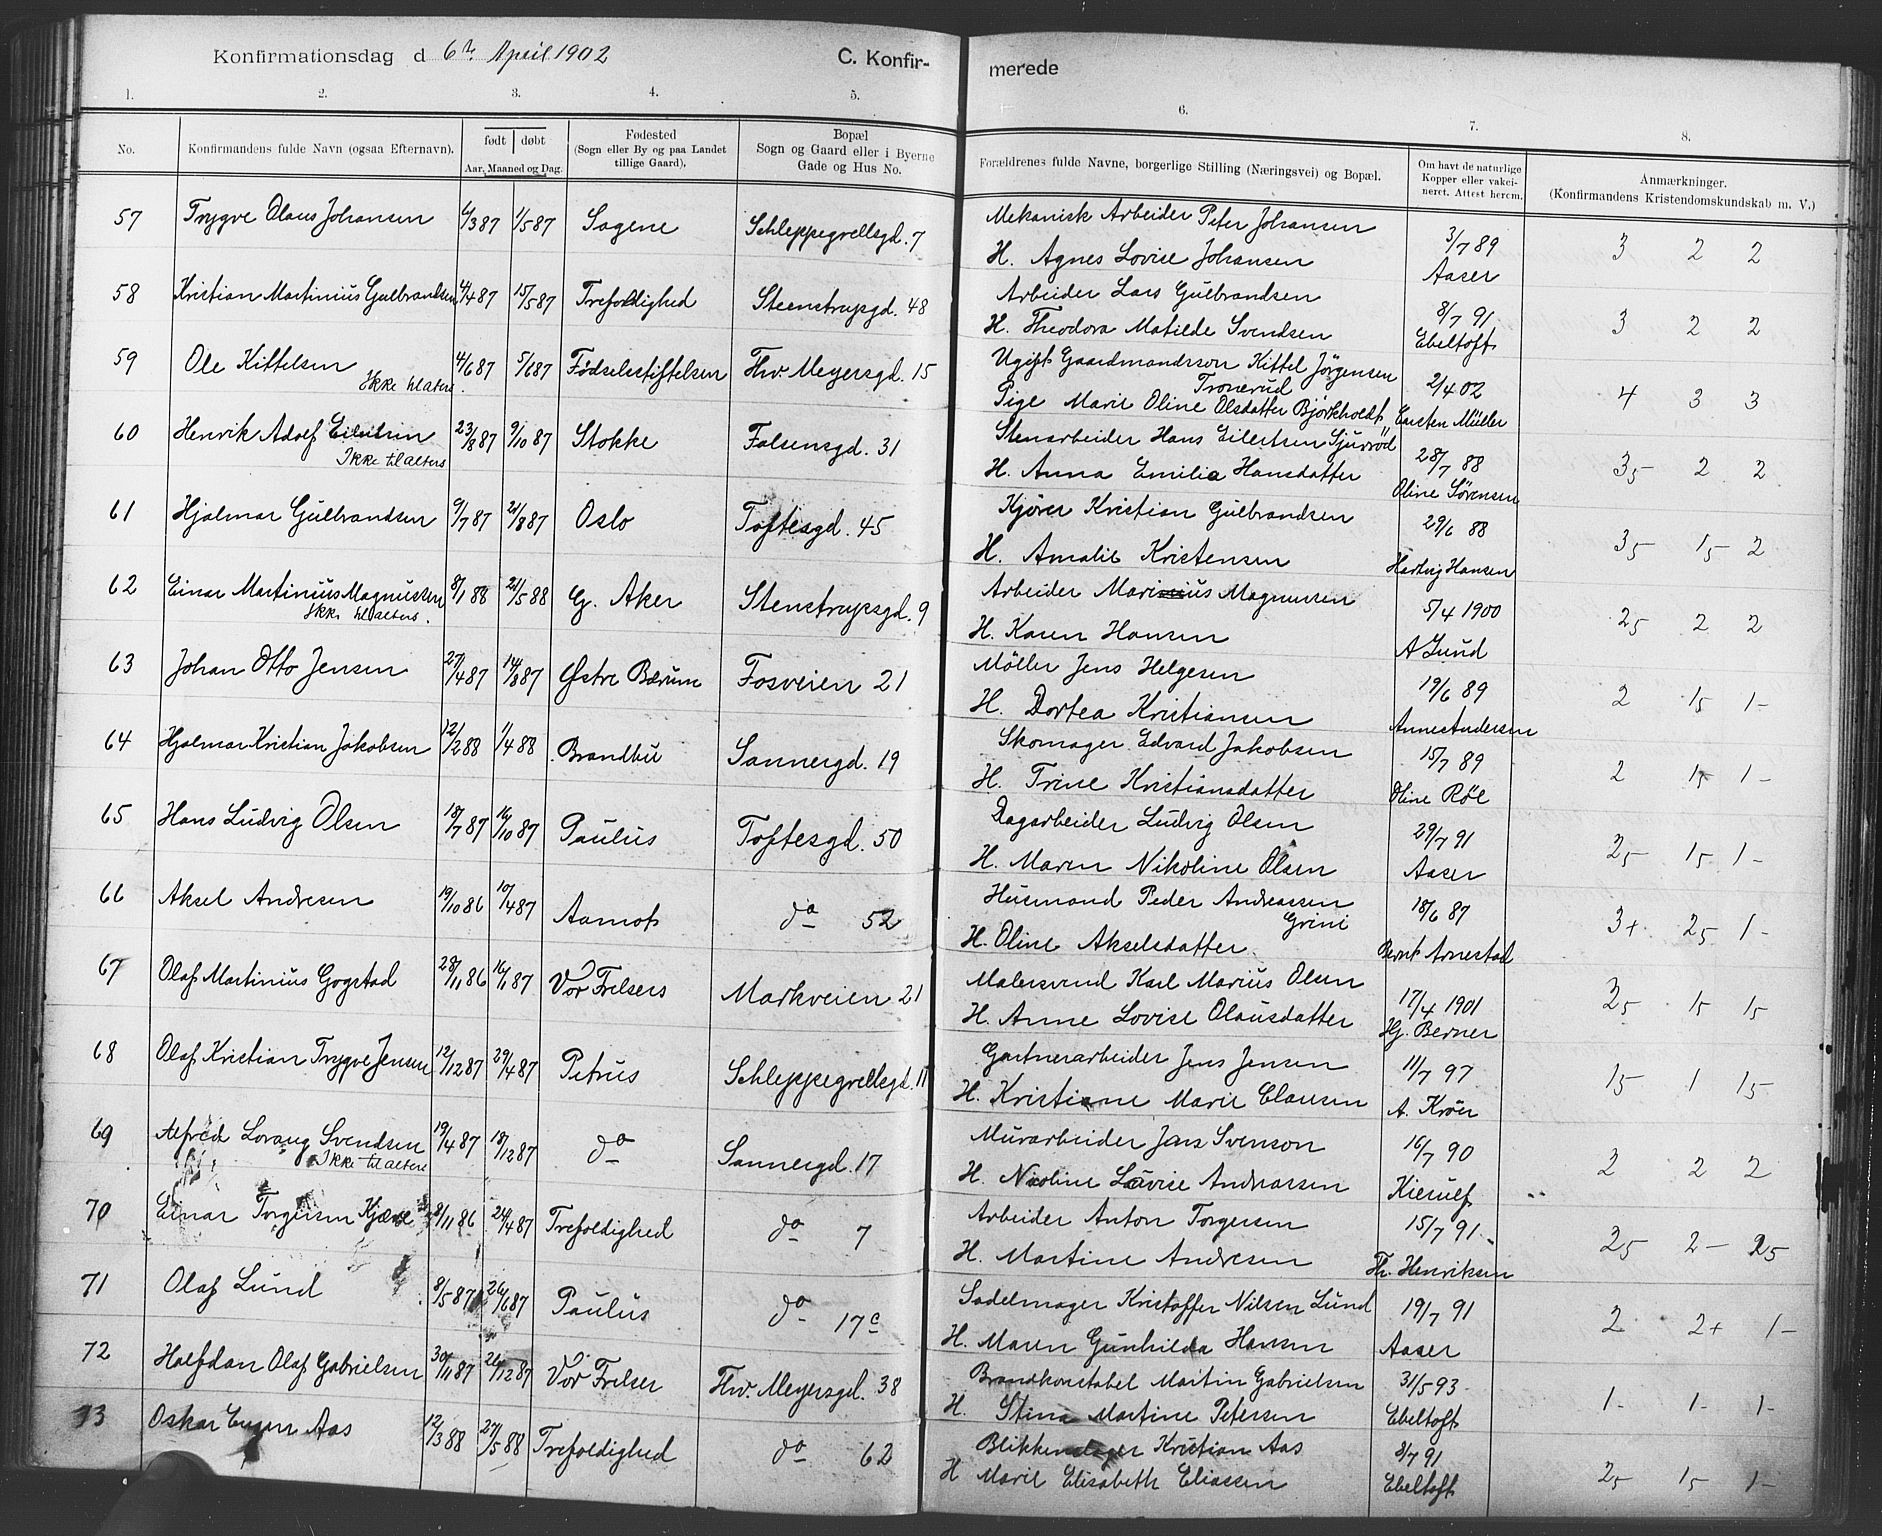 Konfirmationsdag d 6te April 1902 C. Konfir- merede
1. 2. 3. 4. 5. 6. 7. 8.
No. Konfirmandens fulde Navn (ogsaa Efternavn). født døbt Aar, Maaned og Dag. Fødested (Sogn eller By og paa Landet tillige Gaard). Bopæl Sogn og Gaard eller i Byerne Gade og Hus No. Forældrenes fulde Navne, borgerlige Stilling (Næringsvei) og Bopæl. Om havt de naturlige Kopper eller vakcineret. Attest herom. Anmærkninger. (Konfirmandens Kristendomskundskab m. V.)
57 Trygve Olaus Johansen 6/3 87 1/5 87 Sagene Schleppegrellsgd. 7 Mekanisk Arbeider Peter Johansen 3/7 89 3 2 2
H. Agnes Lovise Johansen Aaser
58 Kristian Martinius Gulbrandsen 4/4 87 15/5 87 Trefoldighed Steenstrupsgd. 48 Arbeider Lars Gulbrandsen 8/7 91 3 2 2
H. Theodora Matilde Svendsen Ebeltoft
59 Ole Kittelsen 4/6 87 5/6 87 Fødselsstiftelsen Thv. Meyersgd. 15 Ugift Gaardmandssøn Kittel Jørgensen 2/4 02 4 3 3
Ikke til alters. Tronerud
Pige Marie Oline Olsdatter Bjørkholdt Carsten Müller
60 Henrik Adolf Eilertsen 23/8 87 9/10 87 Stokke Falsensgd. 31 Stenarbeider Hans Eilertsen Sjurrød 28/7 88 35 2 2
Ikke til alters H. Anna Emilie Hansdatter Oline Sørensen
61 Hjalmar Gulbrandsen 9/7 87 21/8 87 Oslo Toftesgd. 45 Kjører Kristian Gulbrandsen 29/6 88 35 15 2
H. Amalie Kristensen Hartvig Hansen
62 Einar Martinius Magnussen 8/1 88 21/5 88 G. Aker Stenstrupsgd. 9 Arbeider Marinius Magnussen 5/4 1900 25 2 2
Ikke til alters. H. Karen Hansen A Lund
63 Johan Otto Jensen 27/4 87 14/8 87 Østre Bærum Fosveien 21 Møller Jens Helgesen 19/6 89 2 15 1-
H. Dortea Kristiansen Anne Andersen
64 Hjalmar Kristian Jakobsen 12/2 88 1/4 88 Brandbu Sannergd. 19 Skomager Edvard Jakobsen 15/7 89 2 1+ 1-
H. Trine Kristiansdatter Oline Røe
65 Hans Ludvig Olsen 18/7 87 16/10 87 Paulus Toftesgd. 50 Dagarbeider Ludvig Olsen 29/7 91 25 15 1-
H. Maren Nikoline Olsen Aaser
66 Aksel Andresen 19/10 86 10/4 87 Aamot do 52 Husmand Peder Andreassen 18/6 87 3+ 25 1-
Grini
H. Oline Akselsdatter Bernt Arnestad
67 Olaf Martinius Gogstad 28/11 86 16/1 87 Vor Frelsers Markveien 21 Malersvend Karl Marius Olsen 17/4 1901 35 15 15
H. Anne Lovise Olausdatter Hj. Berner
68 Olaf Kristian Trygve Jensen 12/12 87 29/4 87 Petrus Schleppegrellsgd. 11 Gartnerarbeider Jens Jensen 11/7 97 15 1 15
H. Kristiane Marie Clausen A. Krøer
69 Alfred Svendsen 19/4 87 18/12 87 do Sannergd. 17 Murarbeider Jens Svenson 16/7 90 2 2 2
Ikke til alters H. Nicoline Lovise Andreassen Kierulf
70 Einar Torgersen 8/11 86 24/4 87 Trefoldighed do 7 Arbeider Anton Torgersen 15/7 91 25 2- 25
H. Martine Andresen Th. Henriksen
71 Olaf Lund 8/5 87 26/6 87 Paulus do 17c Sadelmager Kristoffer Nilsen Lund 19/7 91 2 2+ 1-
H. Maren Gunhilda Hansen Aaser
72 Halfdan Olaf Gabrielsen 30/11 87 26/12 87 Vor Frelser Thv. Meyersgd. 38 Brandkonstabel Martin Gabrielsen 31/5 93 1- 1- 1-
H. Stina Martine Petersen Ebeltoft
73 Oskar Eugen Aas 12/3 88 27/5 88 Trefoldighed do 62 Blikkenslager Kristian Aas 8/7 91 25 15 1-
H Marie Elisabeth Eliassen Ebeltoft